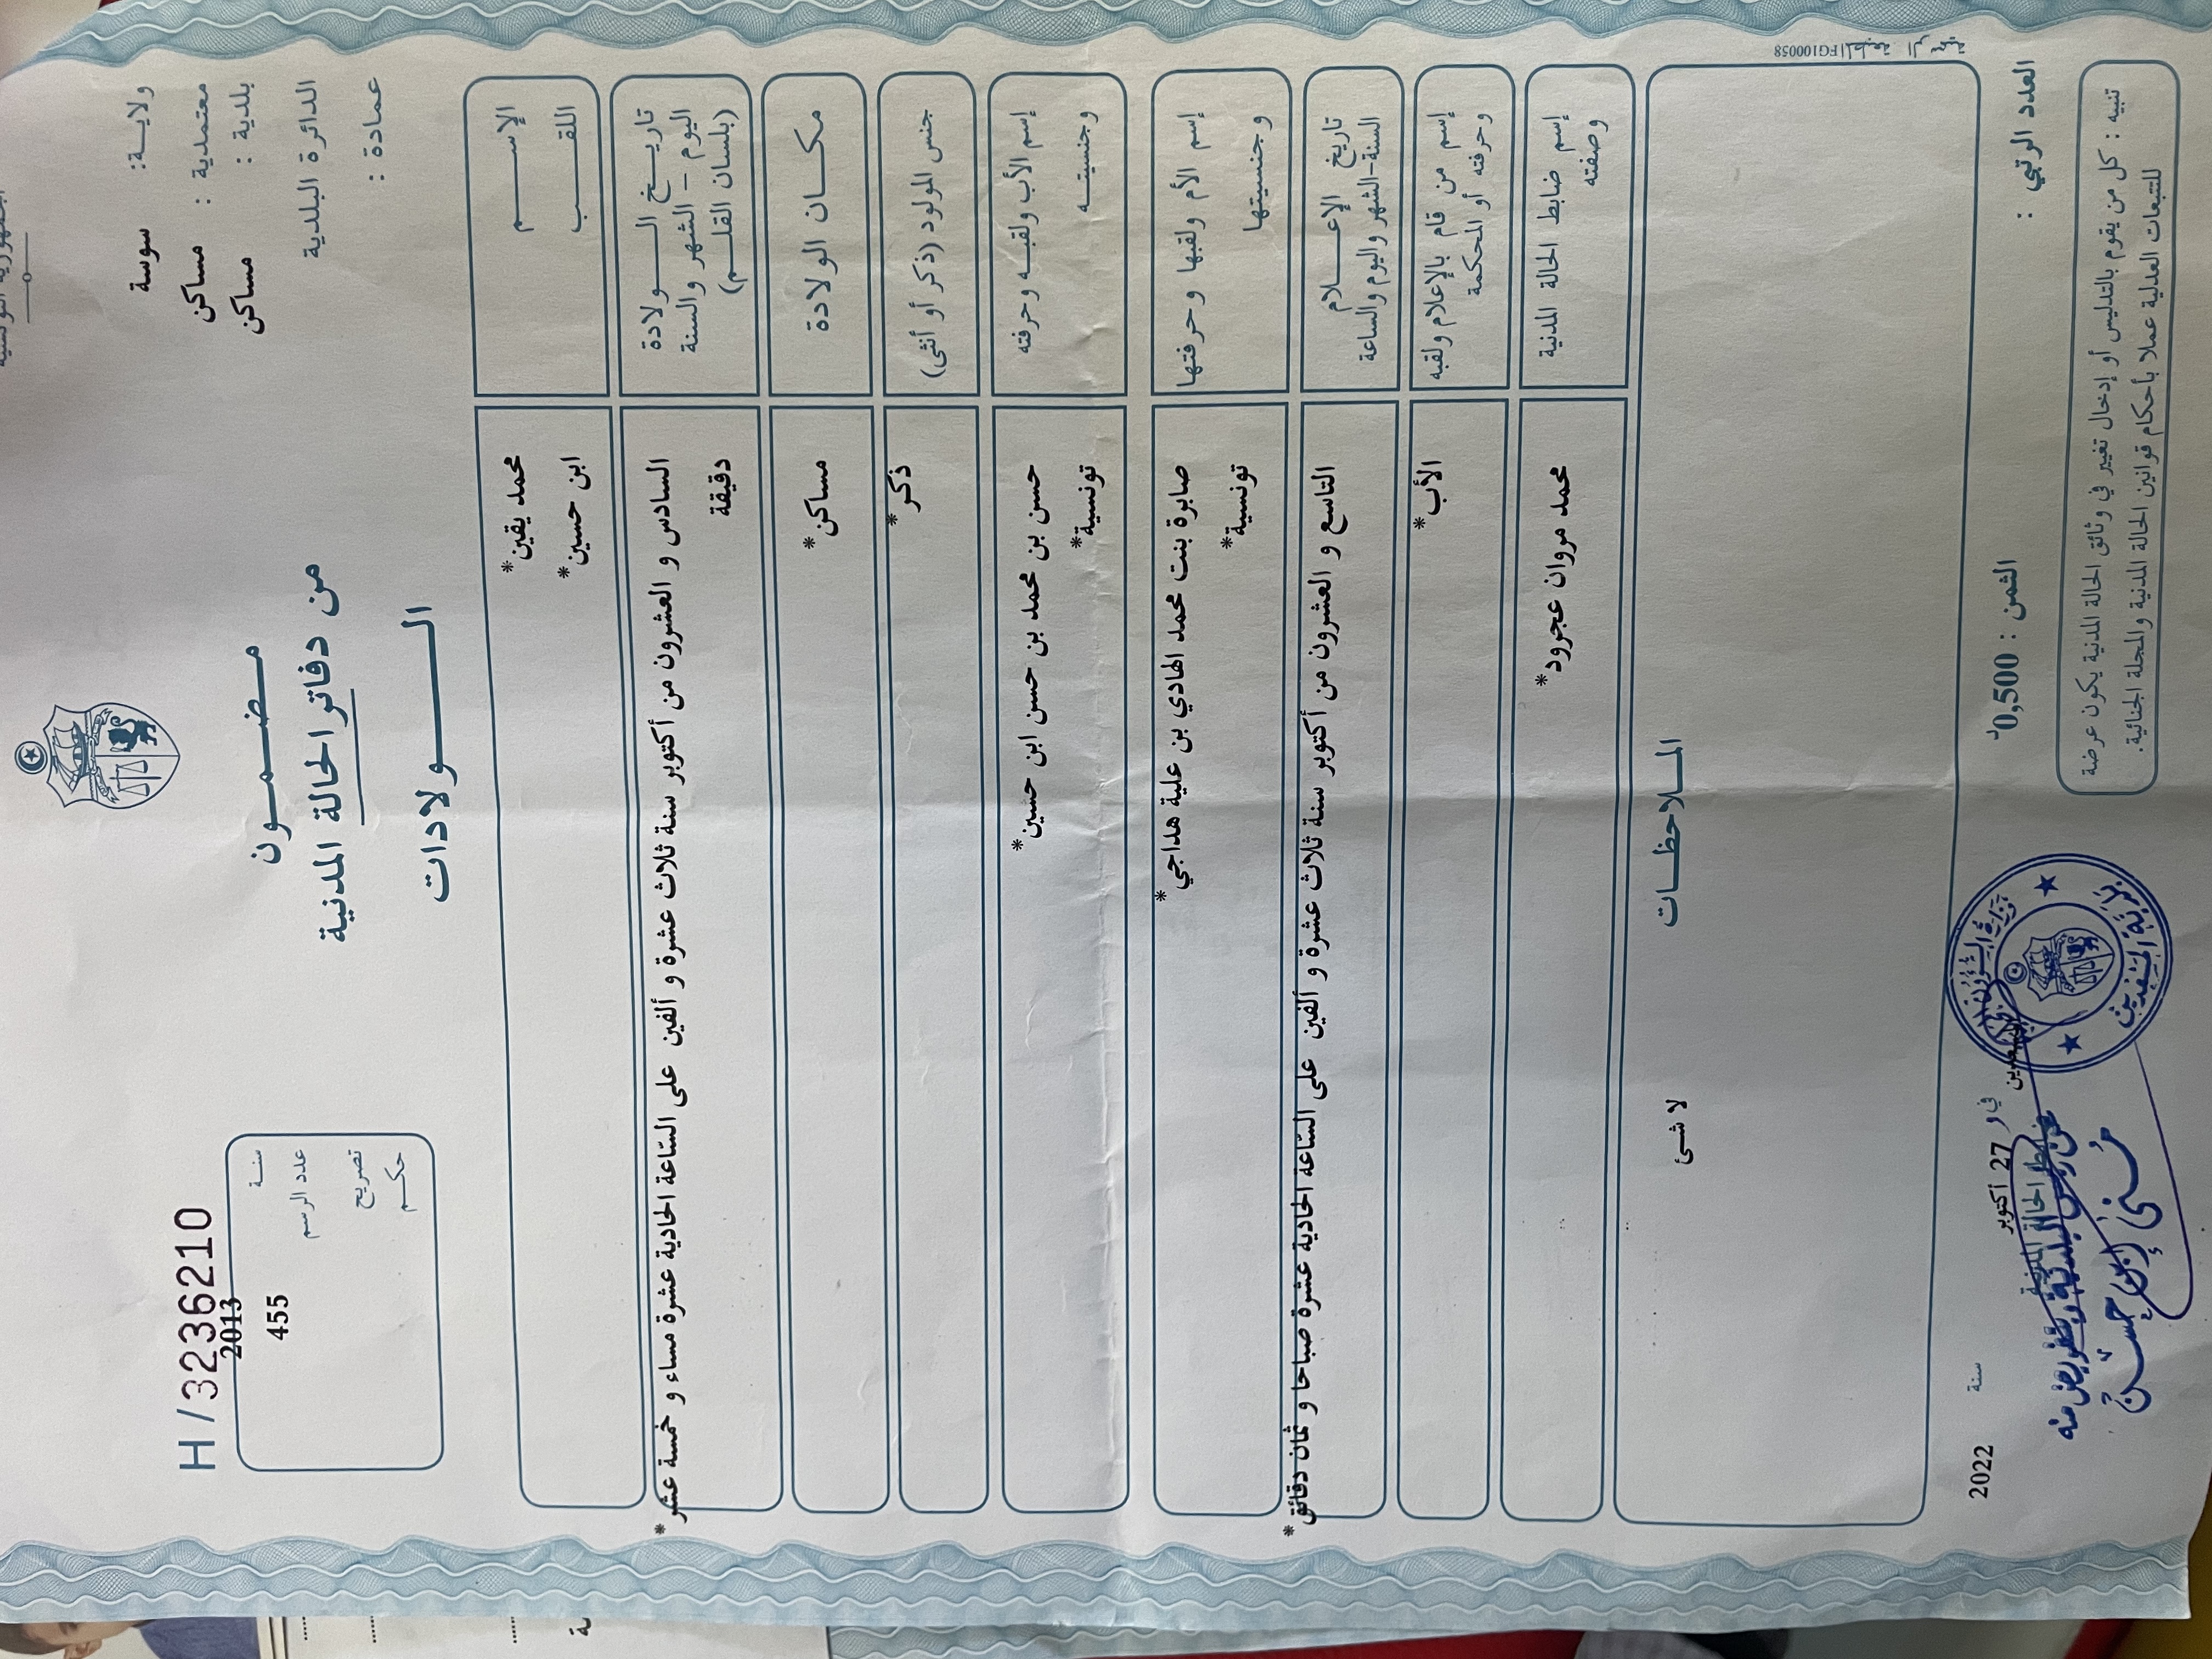 الجمهورية التونسية
ولاية: سوسة
معتمدية : مساكن
بلدية : مساكن
الدائرة البلدية
عمادة :
مضمون
من دفاتر الحالة المدنية
الولادات
H/3236210
سنة 2013
عدد الرسم 455
تصريح
حكم
الإسم محمد يقين*
اللقب ابن حسين*
تاريخ الولادة
اليوم - الشهر والسنة
(بلسان القلم)
السادس و العشرون من أكتوبر سنة ثلاث عشرة و ألفين على السّاعة الحادية عشرة مساء و خمسة عشر*
دقيقة
مكان الولادة مساكن*
جنس المولود (ذكر أو أنثى) ذكر*
إسم الأب ولقبه وحرفته حسن بن محمد بن حسن ابن حسين*
وجنسيته تونسية*
إسم الأم ولقبها وحرفتها صابرة بنت محمد الهادي بن علية هداجي*
وجنسيتها تونسية*
تاريخ الإعلام
السنة-الشهر واليوم والساعة
التاسع و العشرون من أكتوبر سنة ثلاث عشرة و ألفين على السّاعة الحادية عشرة صباحا و ثمان دقائق*
إسم من قام بالإعلام ولقبه الأب*
وحرفته أو المحكمة
إسم ضابط الحالة المدنية محمد مروان عجرود*
وصفته
الملاحظات
لا شئ
المطبعة الرسمية FG100058
في 27 أكتوبر سنة 2022
ضابط الحالة المدنية
عن رئيس البلدية وبتفويض منه
منى ابن حسين
العدد الرتبي :
الثمن : 0,500د
تنبيه : كل من يقوم بالتدليس أو إدخال تغيير في وثائق الحالة المدنية يكون عرضة
للتتبعات العدلية عملا بأحكام قوانين الحالة المدنية والمجلة الجنائية.